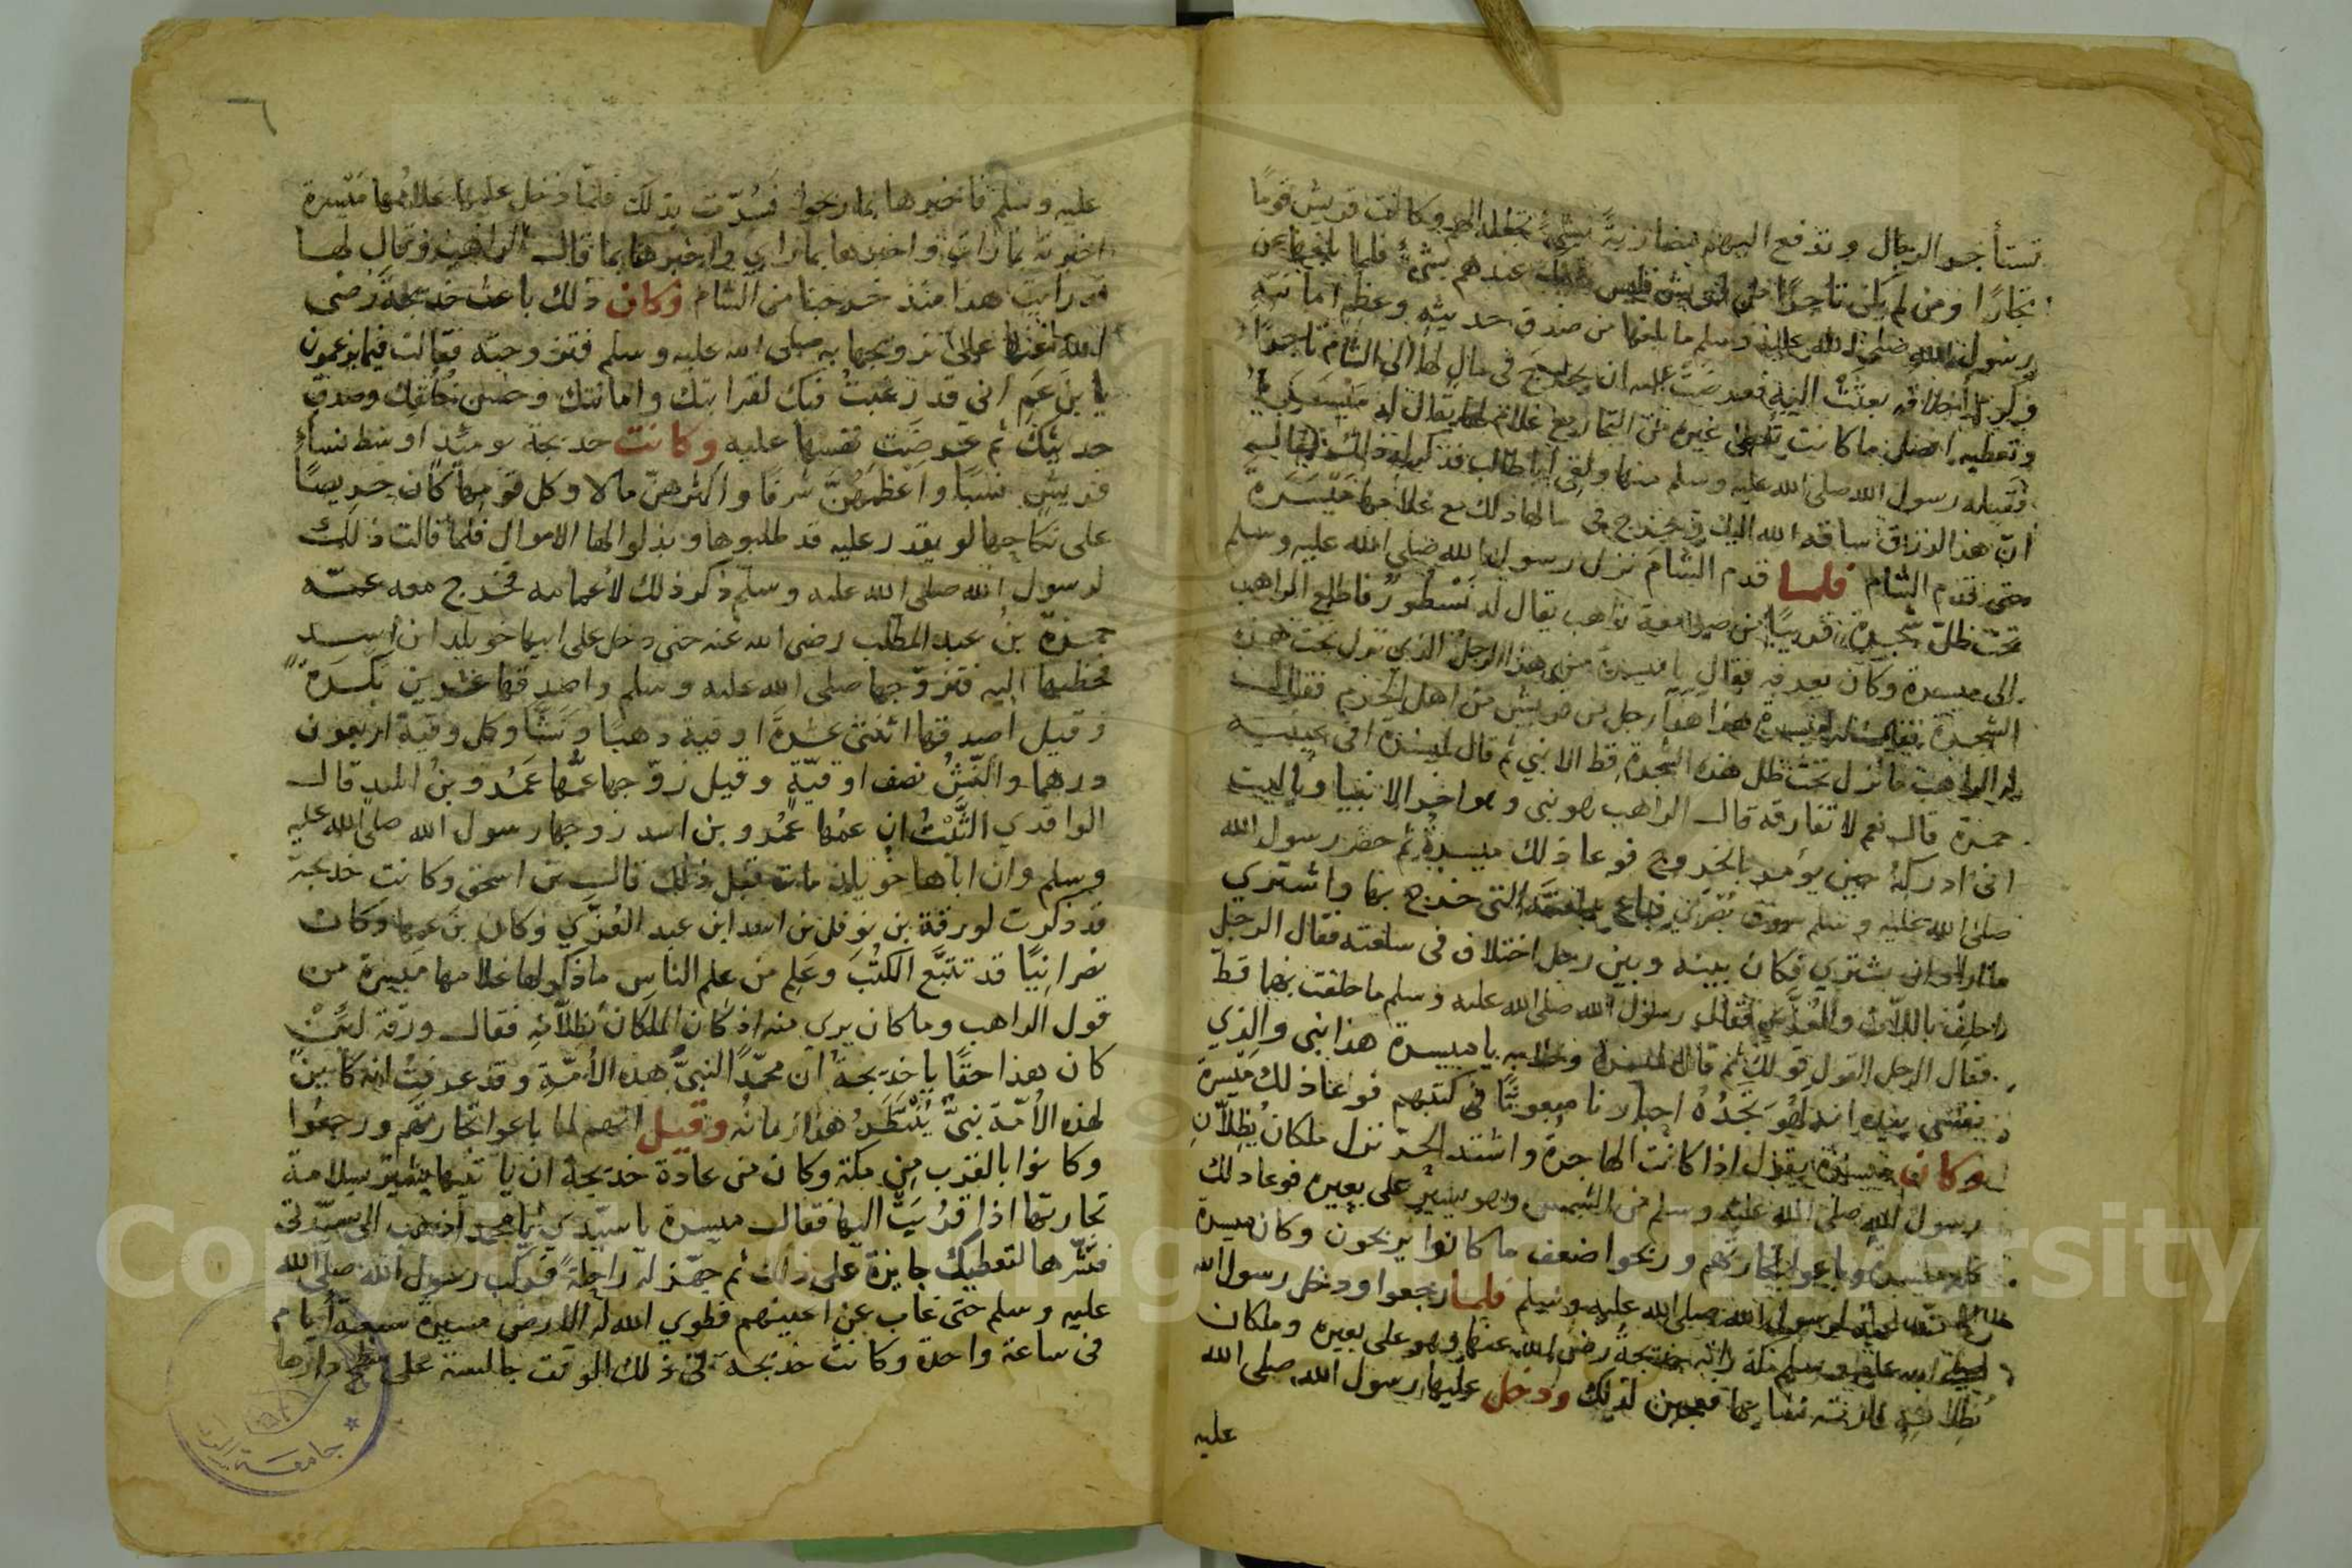 تستأجر الرجال وتدفع اليهم مضاربةً بشيءٍ تجعله لهم وكانت قريش قومًا
تجارًا ومن لم يكن تاجرًا من قريش فليس عندهم بشيءٍ فلما بلغها عن
رسول الله صلى الله عليه وسلم ما بلغها من صدق حديثه وعظم امانته
وكرم اخلاقه بعثت اليه فعرضت عليه ان يخرج في مال لها الى الشام تاجرًا
وتعطيه افضل ما كانت تعطى غيره من التجار مع غلام لها يقال له مَيْسَرَة
فقبله رسول الله صلى الله عليه وسلم منها ولقى ابا طالب فذكر له ذلك فقال
ان هذا الرزق ساقه الله اليك فخرج في مالها ذلك مع غلامها مَيْسَرَة
حتى قدم الشام فلما قدم الشام نزل رسول الله صلى الله عليه وسلم
تحت ظل شجرة قريبًا من صومعة راهب يقال له نَسْطور فاطلع الراهب
الى ميسرة وكان يعرفه فقال يا ميسرة من هذا الرجل الذي نزل تحت هذه
الشجرة فقال ميسرة هذا رجل من قريش من اهل الحرم فقال
له الراهب ما نزل تحت ظل هذه الشجرة قط الا نبي ثم قال لميسرة افى عينيه
حمرة قال نعم لا تفارقه قال الراهب هو نبي وهو اخر الانبيا ويا ليت
انى ادركهُ حين يؤمر بالخروج فوعا ذلك ميسرة ثم حضر رسول الله
صلى الله عليه وسلم سوق بصرى فباع التي خرج بها واشترى
ما اراد ان يشترى فكان بينه وبين رجل اختلاف في سلعته فقال الرجل
احلف باللات والعزى فقال رسول الله صلى الله عليه وسلم ما حلفت بهما قط
فقال الرجل القول قولك ثم قال لميسرة وخلا به يا ميسرة هذا نبي والذي
نفسي بيده انه لهُوَ تَجدُهُ احبارنا مبعوثًا في كتبهم فوعا ذلك ميسرة
وكان ميسرة يقول اذا كانت الهاجرة واشتد الحر نزل ملكان يُظِلاّنِ
رسول الله صلى الله عليه وسلم من الشمس وهو يسير على بعيره فوعا ذلك
كله ميسرة وباعوا تجارتهم وربحوا ضعف ما كانوا يربحون وكان ميسرة
لرسول الله صلى الله عليه وسلم فلما رجعوا ودخل رسول الله
صلى الله عليه وسلم مكة راته خديجة رضى الله عنها وهو على بعيره وملكان
يُظِلان عليه فارته نساءها فعجبن لذلك ودخل عليها رسول الله صلى الله
عليه
٦
عليه وسلم فاخبرها بما ربحوا فسُرّت بذلك فلمّا دخل عليها غلامُها مَيْسرة
اخبرته بما رات واخبرها بما راى واخبرها بما قال الراهب وقال لها
قد رايت هذا منذ خرجنا من الشام وكان ذلك باعث خديجة رضى
الله عنها على تزويجها به صلى الله عليه وسلم فتزوجته فقالت فيما يزعمون
يا بنَ عَمِ اني قد رغبتُ فيك لقرابتك وامانتك وحسن خُلُقِك وصدق
حديثك ثم عرضت نفسها عليه وكانت خديجة يومئذٍ اوسط نساءِ
قريش نسبًا واعظمهُنَّ شرفًا واكثرهنّ مالا وكل قومها كان حريصًا
على نكاحها لو يقدر عليه قد طلبوها وبذلوا لها الاموال فلما قالت ذلك
لرسول الله صلى الله عليه وسلم ذكر ذلك لاعمامه فخرج معه عمّه
حمزة بنُ عبد المطلب رضى الله عنه حتى دخل على ابيها خويلد ابن اسد
فخطبها اليه فتزوّجها صلى الله عليه وسلم واصدقها عشرين بَكْرَةً
وقيل اصدقها اثنتى عشرةَ اوقيةً ذهبًا ونَشًّا وكل وقية اربعون
درهما والنّشُّ نصف اوقيّةٍ وقيل زوّجها عمُّها عَمْرو بنُ اسد قال
الواقدي الثَّبْتُ ان عمّها عَمْرو بن اسد زوجها رسول الله صلى الله عليه
وسلم وان اباها خويلد مات قبل ذلك قال بن اسحق وكانت خديجة
قد ذكرت لورقة بن نوفل بن اسد ابن عبد العُزّى وكان بن عمها وكان
نصرانيًّا قد تتبّع الكتُبَ وعَلِم من علم الناس ما ذكر لها غلامها ميسرة من
قول الراهب وما كان يرى منه اذ كان الملكان يُظلاّنهِ فقال ورقة لئنْ
كان هذا حقًا يا خديجةُ ان محمّدًا لنبيُّ هذه الأمّةِ وقد عرفتُ انه كائن
لهذه الأمّة نبيٌّ يُنْتَظَر هذا زمانُه وقيل انهم لما باعوا تجارتهم ورجعوا
وكانوا بالقرب من مكة وكان من عادة خديجة ان يا تيها بشير بسلامة
تجارتها اذا قرُبَت اليها فقال ميسرة يا سيّدي يا محمد اذهب الى سيّدتى
فبشّرها لتعطيك جايزة على ذلك ثم جهّز له راحلةً فركب رسول الله صلى الله
عليه وسلم حتى غاب عن اعينهم فطوى الله له الارض مسيرة سبعة ايام
فى ساعة واحدة وكانت خديجة فى ذلك الوقت جالسة على سطح دارها
جامعة
Copyright © King Saud University